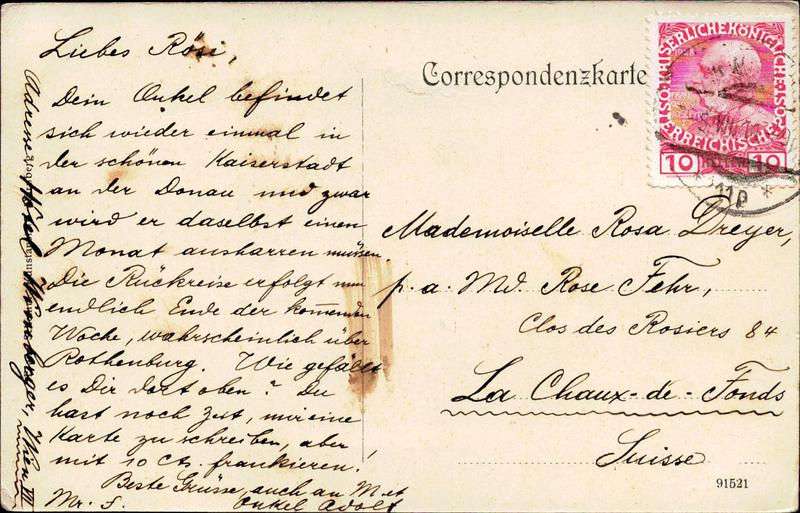 Liebes Rösi,
Dein Onkel befindet
sich wieder einmal in
der schönen Kaiserstadt
an der Donau und zwar
wird er daselbst einen
Monat ausharren müssen.
Die Rückreise erfolgt nun
endlich Ende der kommenden
Woche, wahrscheinlich über
Rothenburg. Wie gefällt
es Dir dort oben? Du
hast noch Zeit, mir eine
Karte zu schreiben, aber
mit 10 Cts. frankieren!
Beste Grüsse, auch an M. et
Mr. F. Onkel Adolf
Adresse Hôtel Wien VIII
Correspondenzkarte
Mademoiselle Rosa Dreyer,
p. a. Md. Rose Fehr,
Clos des Rosiers 84
La Chaux-de-Fonds
Suisse
91521
KAISERLICHEKÖNIGLICHE
ÖSTERREICHISCHE
1908
FRANZ
JOSEF I
10 HELLER 10